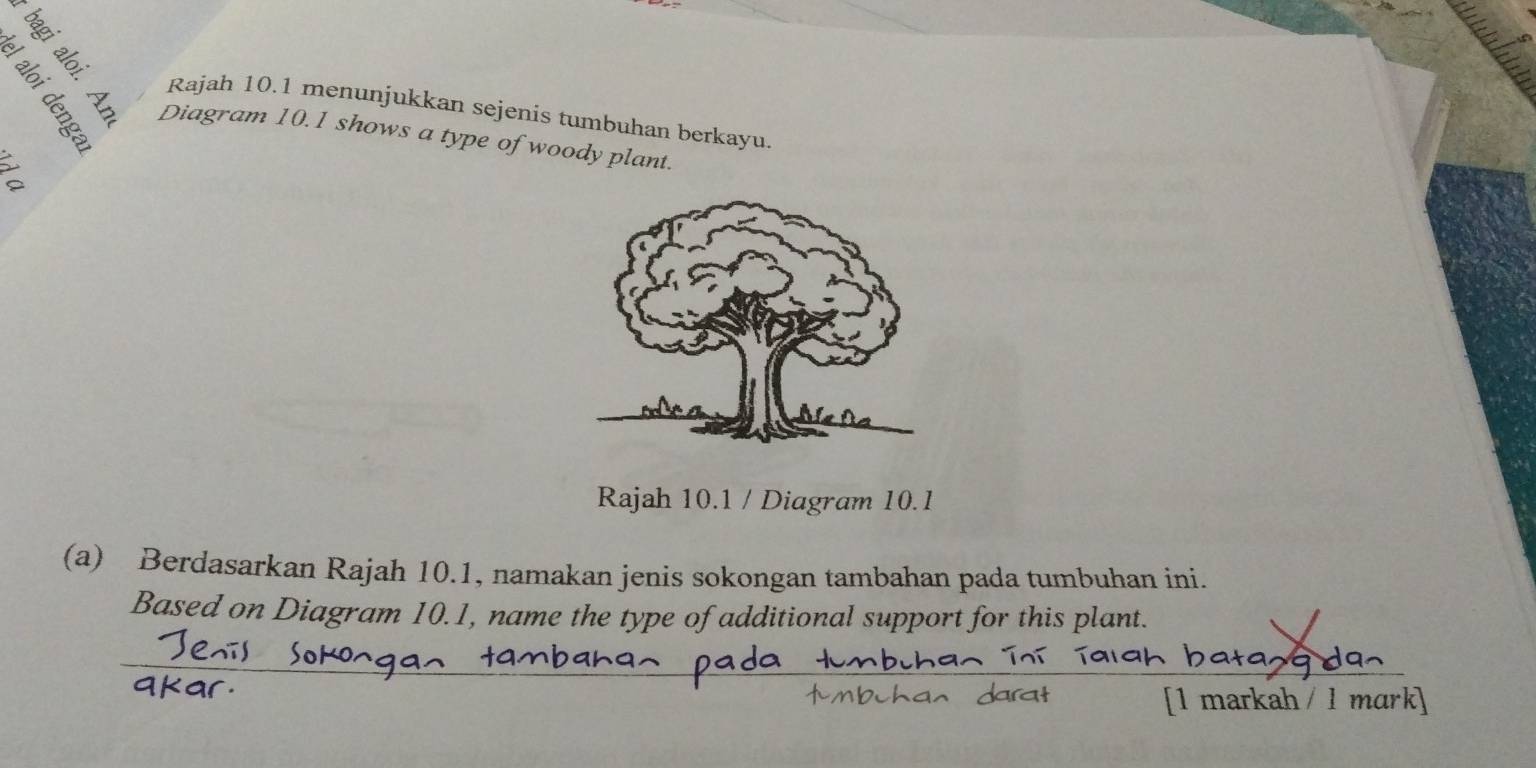 bagi aloi. An
del aloi dengan
ld a
Rajah 10.1 menunjukkan sejenis tumbuhan berkayu.
Diagram 10.1 shows a type of woody plant.
Rajah 10.1 / Diagram 10.1
(a) Berdasarkan Rajah 10.1, namakan jenis sokongan tambahan pada tumbuhan ini.
Based on Diagram 10.1, name the type of additional support for this plant.
Jenis sokongan tambahan pada tumbuhan ini ialah batang dan
akar.
tumbuhan darat
[1 markah / 1 mark]